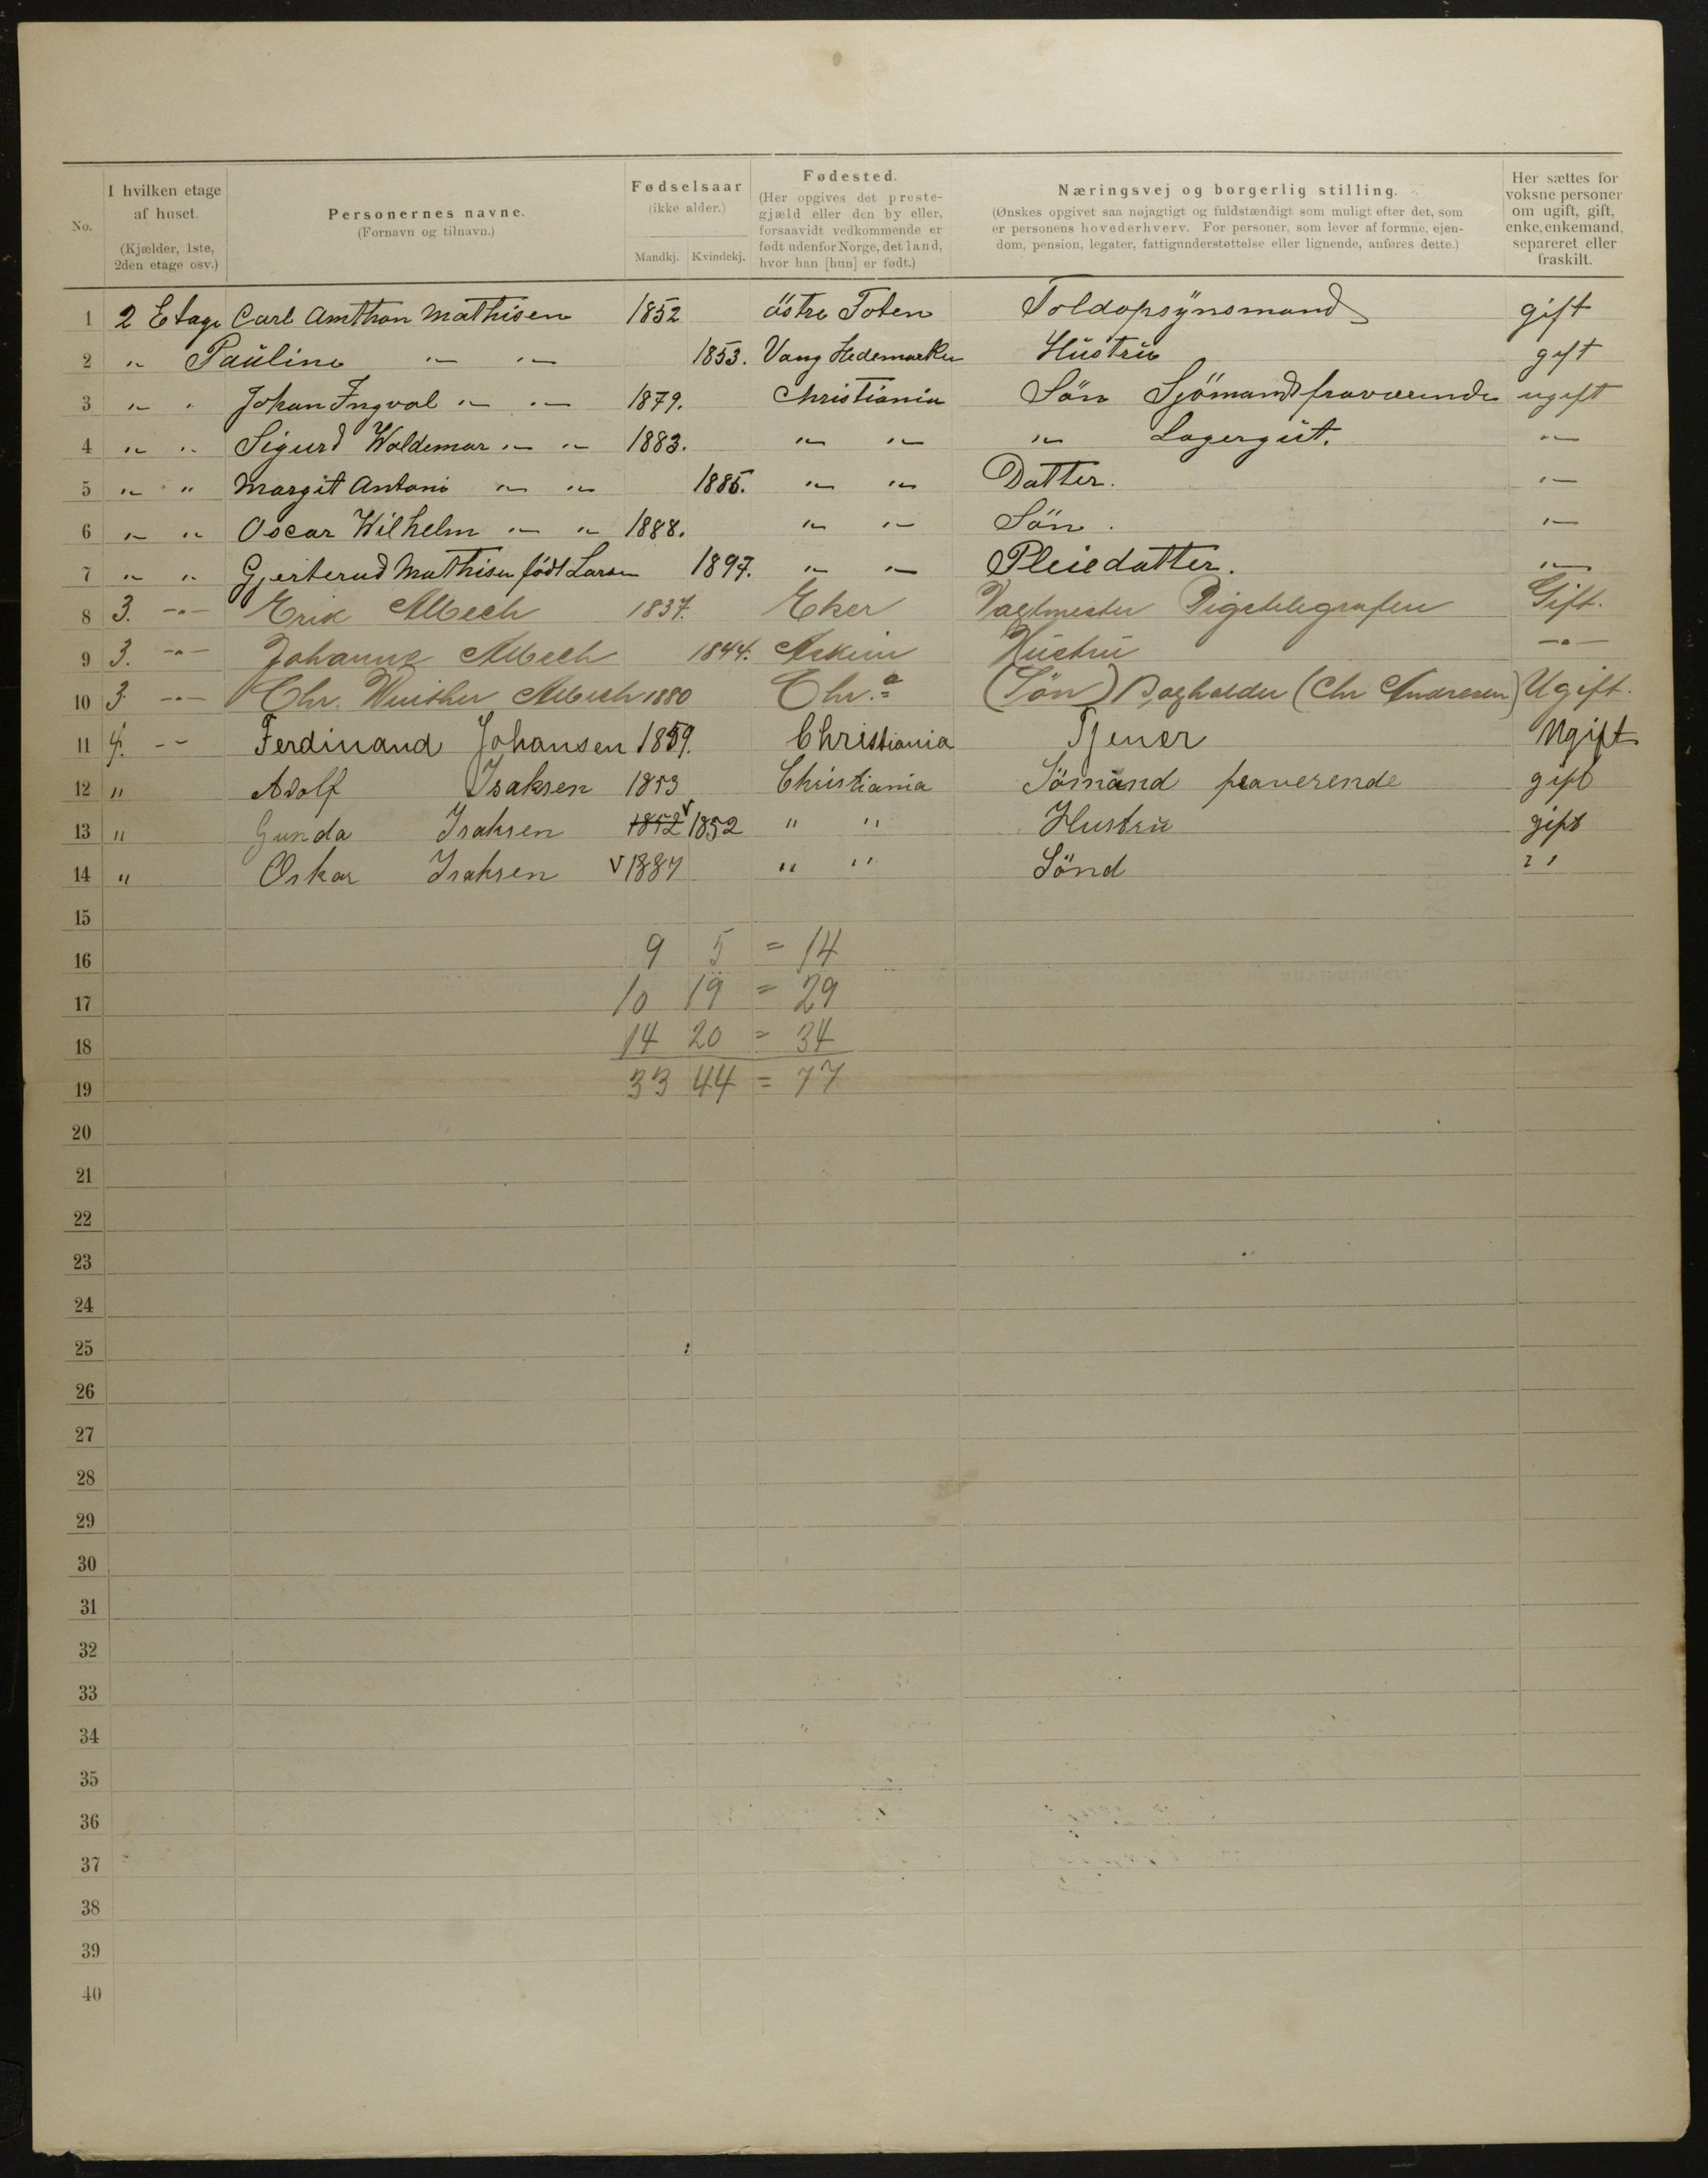 No. | I hvilken etage af huset. (Kjælder, 1ste, 2den etage osv.) | Personernes navne. (Fornavn og tilnavn.) | Fødselsaar (ikke alder.) Mandkj. Kvindekj. | Fødested. (Her opgives det prestegjæld eller den by eller, forsaavidt vedkommende er født udenfor Norge, det land, hvor han [hun] er født.) | Næringsvej og borgerlig stilling. (Ønskes opgivet saa nøjagtigt og fuldstændigt som muligt efter det, som er personens hovederhverv. For personer, som lever af formue, ejendom, pension, legater, fattigunderstøttelse eller lignende, anføres dette.) | Her sættes for voksne personer om ugift, gift, enke, enkemand, separeret eller fraskilt.
1 2 Etage Carl Amthon Mathisen 1852 östre Toten Toldopsynsmand gift
2 " Pauline " " 1853. Vang Hedemarken Hüstrü gift
3 " " Johan Ingval " " 1879. Christiania Sön Sjömand fraværende ugift
4 " " Sigurd Waldemar " " 1883. " " " Lagergüt. "
5 " " Margit Antoni " " 1885. " " Datter. "
6 " " Oscar Wilhelm " " 1888. " " Sön. "
7 " " Gjerterud Mathisen født Larsen 1897. " " Pleiedatter. "
8 3. -"- Erik 1837. Eker Vagtmester Rigstelegrafen Gift.
9 3. -"- Johanne 1844. Askim Hüstrü -"-
10 3. -"- Chr. Winther 1880 Chr.a (Sön) Bogholder (Chr Andresen) Ugift.
11 4. -- Ferdinand Johansen 1859. Christiania Tjener Ugift
12 " Adolf Isaksen 1853 Christiania Sömand fraverende gift
13 " Gunda Isaksen 1852 1852 " " Hustrü gift
14 " Oskar Isaksen 1887 " " Sönd "
15
16 9 5 = 14
17 10 19 = 29
18 14 20 = 34
19 33 44 = 77
20
21
22
23
24
25
26
27
28
29
30
31
32
33
34
35
36
37
38
39
40